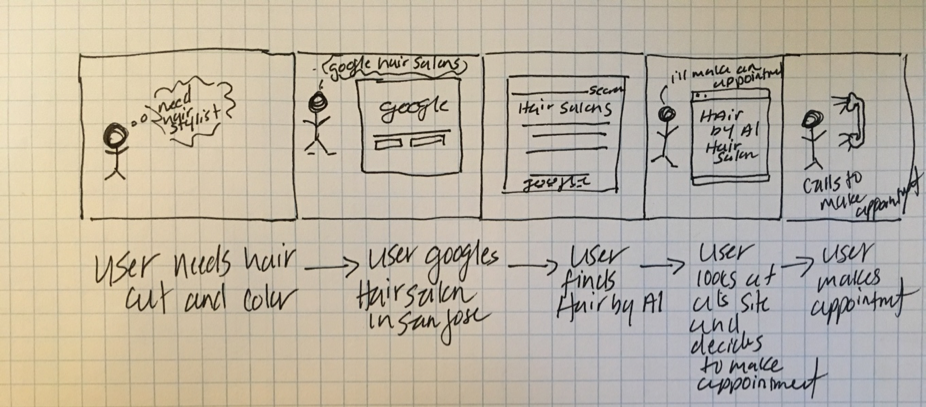 need
hair
stylist
google hair salons
google
Hair Salons
i'll make an
appointment
HAir
by Al
Hair
Salon
calls to
make appointmet
User needs hair
cut and color
User googles
Hair salon
in san jose
User
finds
Hair by Al
User
looks at
als site
and
decides
to make
appointment
User
makes
appointmet